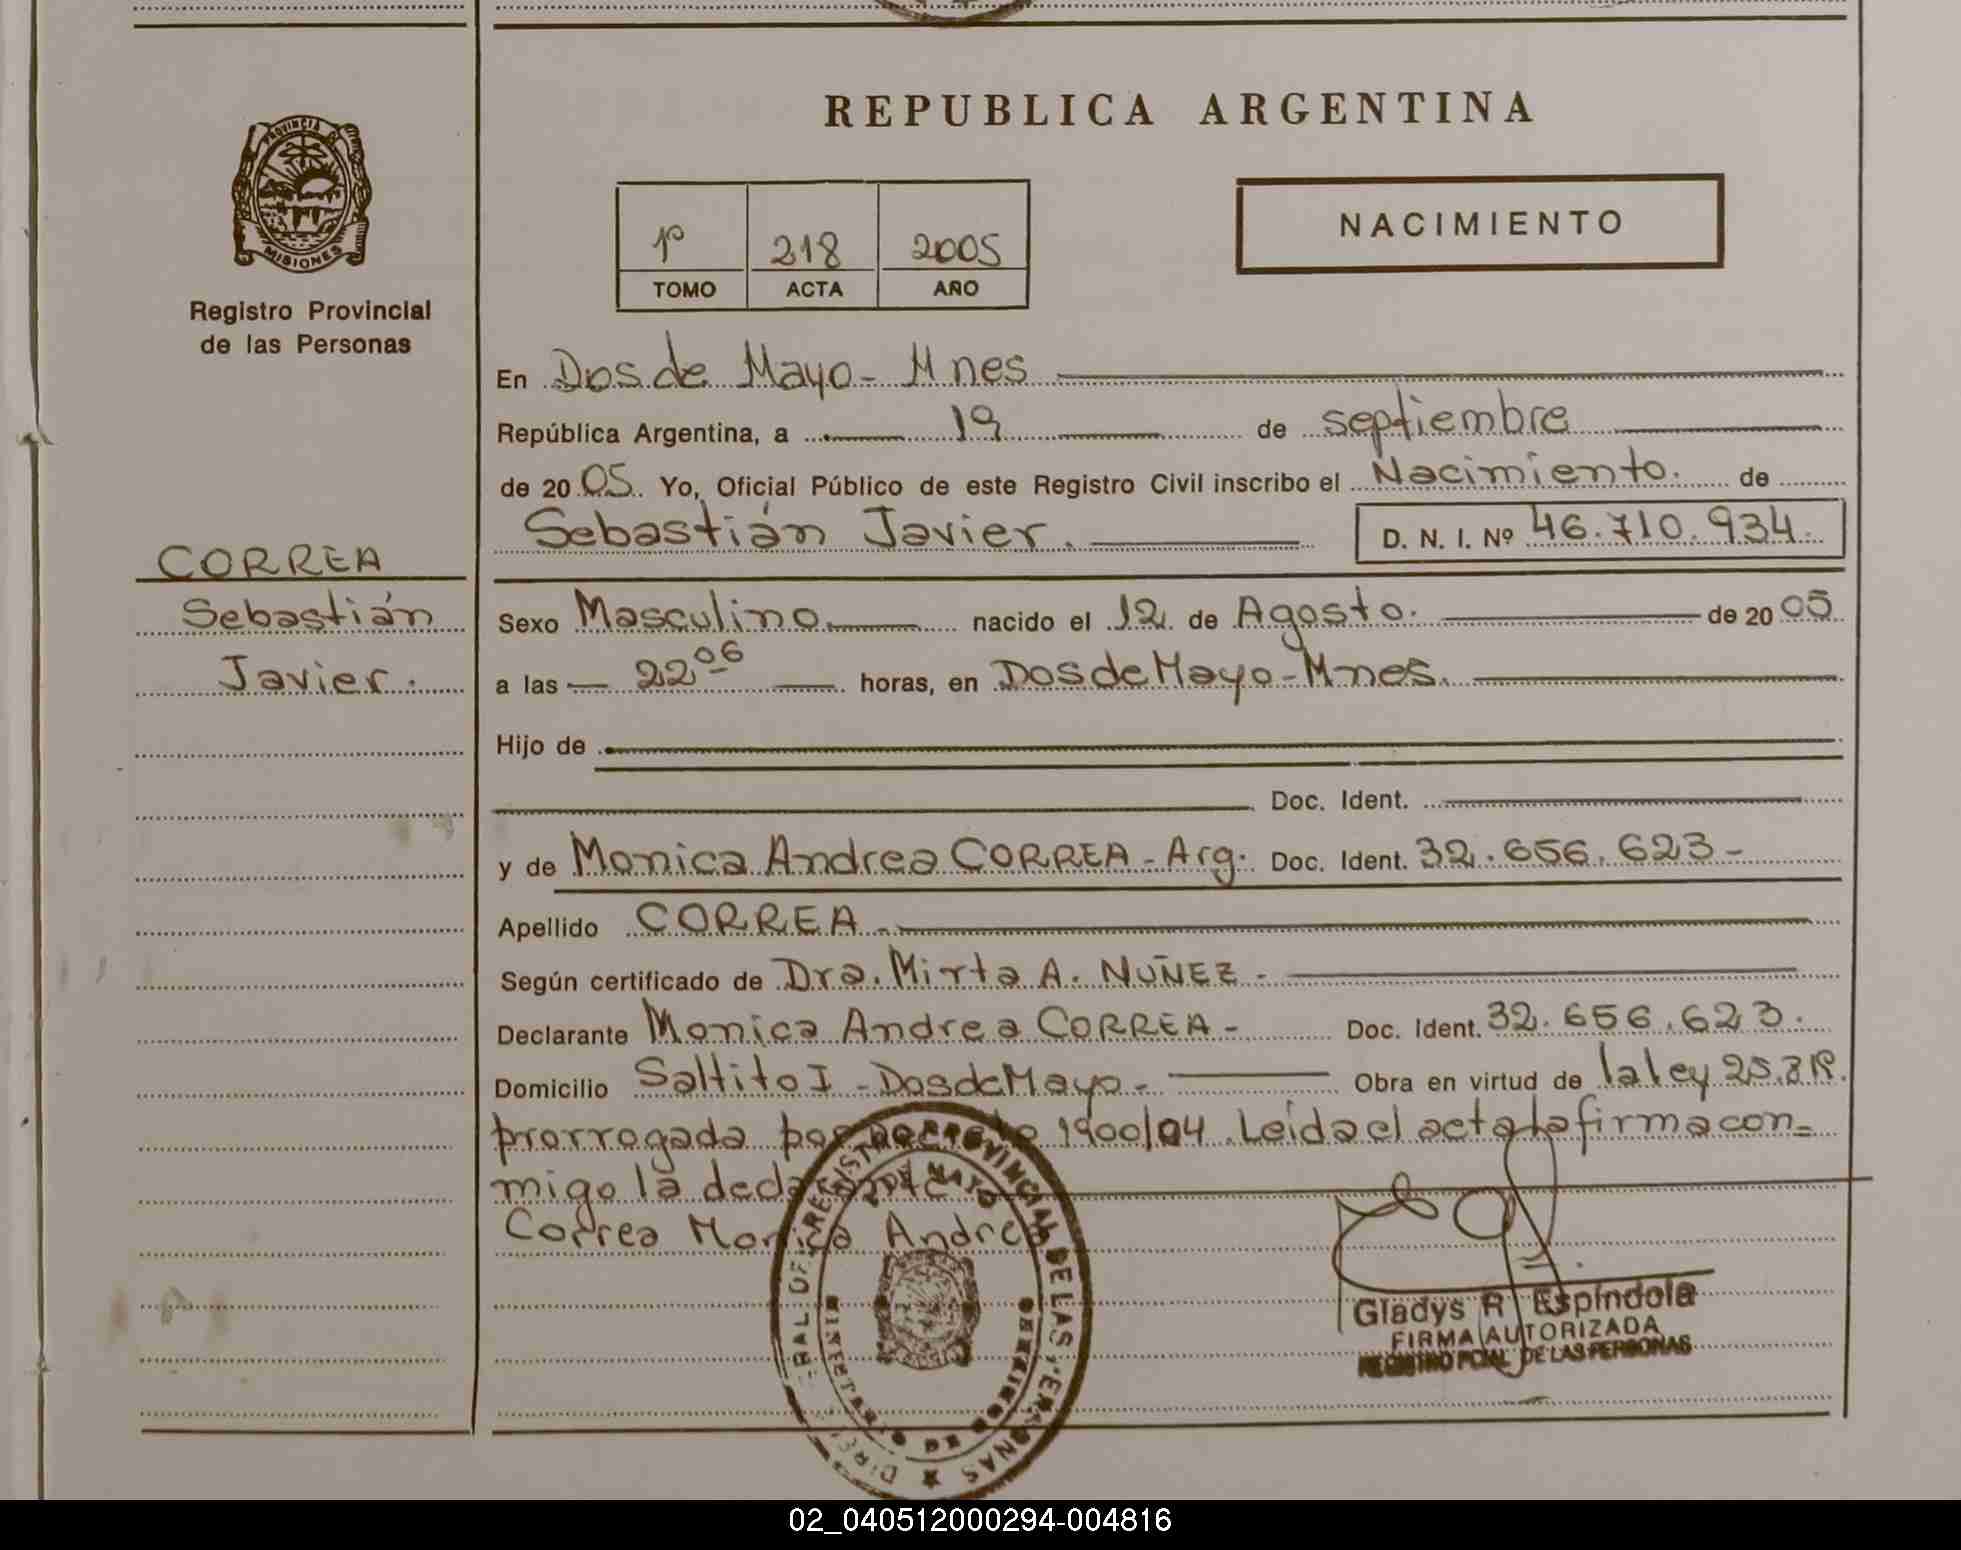 REPUBLICA ARGENTINA
PROVINCIA DE
MISIONES
Registro Provincial
de las Personas
1º 218 2005
TOMO ACTA AÑO
NACIMIENTO
En Dos de Mayo - Mnes
República Argentina, a 19 de septiembre
de 2005. Yo, Oficial Público de este Registro Civil inscribo el Nacimiento. de
Sebastián Javier. D. N. I. Nº 46.710.934.
CORREA
Sebastián
Javier.
Sexo Masculino nacido el 12 de Agosto. de 2005
a las 22 06 horas, en Dos de Mayo - Mnes.
Hijo de
Doc. Ident.
y de Monica Andrea CORREA - Arg. Doc. Ident. 32.656.623 -
Apellido CORREA -
Según certificado de Dra. Mirta A. NUÑEZ -
Declarante Monica Andrea CORREA - Doc. Ident. 32.656.623.
Domicilio Saltito I - Dos de Mayo - Obra en virtud de la ley 25.819
prorrogada por Decreto 1900/04. Leida el acta la firma con=
migo la declarante
Correa Monica Andrea
REGISTRO PROVINCIAL DE LAS PERSONAS
DOS DE MAYO
Gladys R Espíndola
FIRMA AUTORIZADA
REGISTRO PCIAL DE LAS PERSONAS
02_040512000294-004816